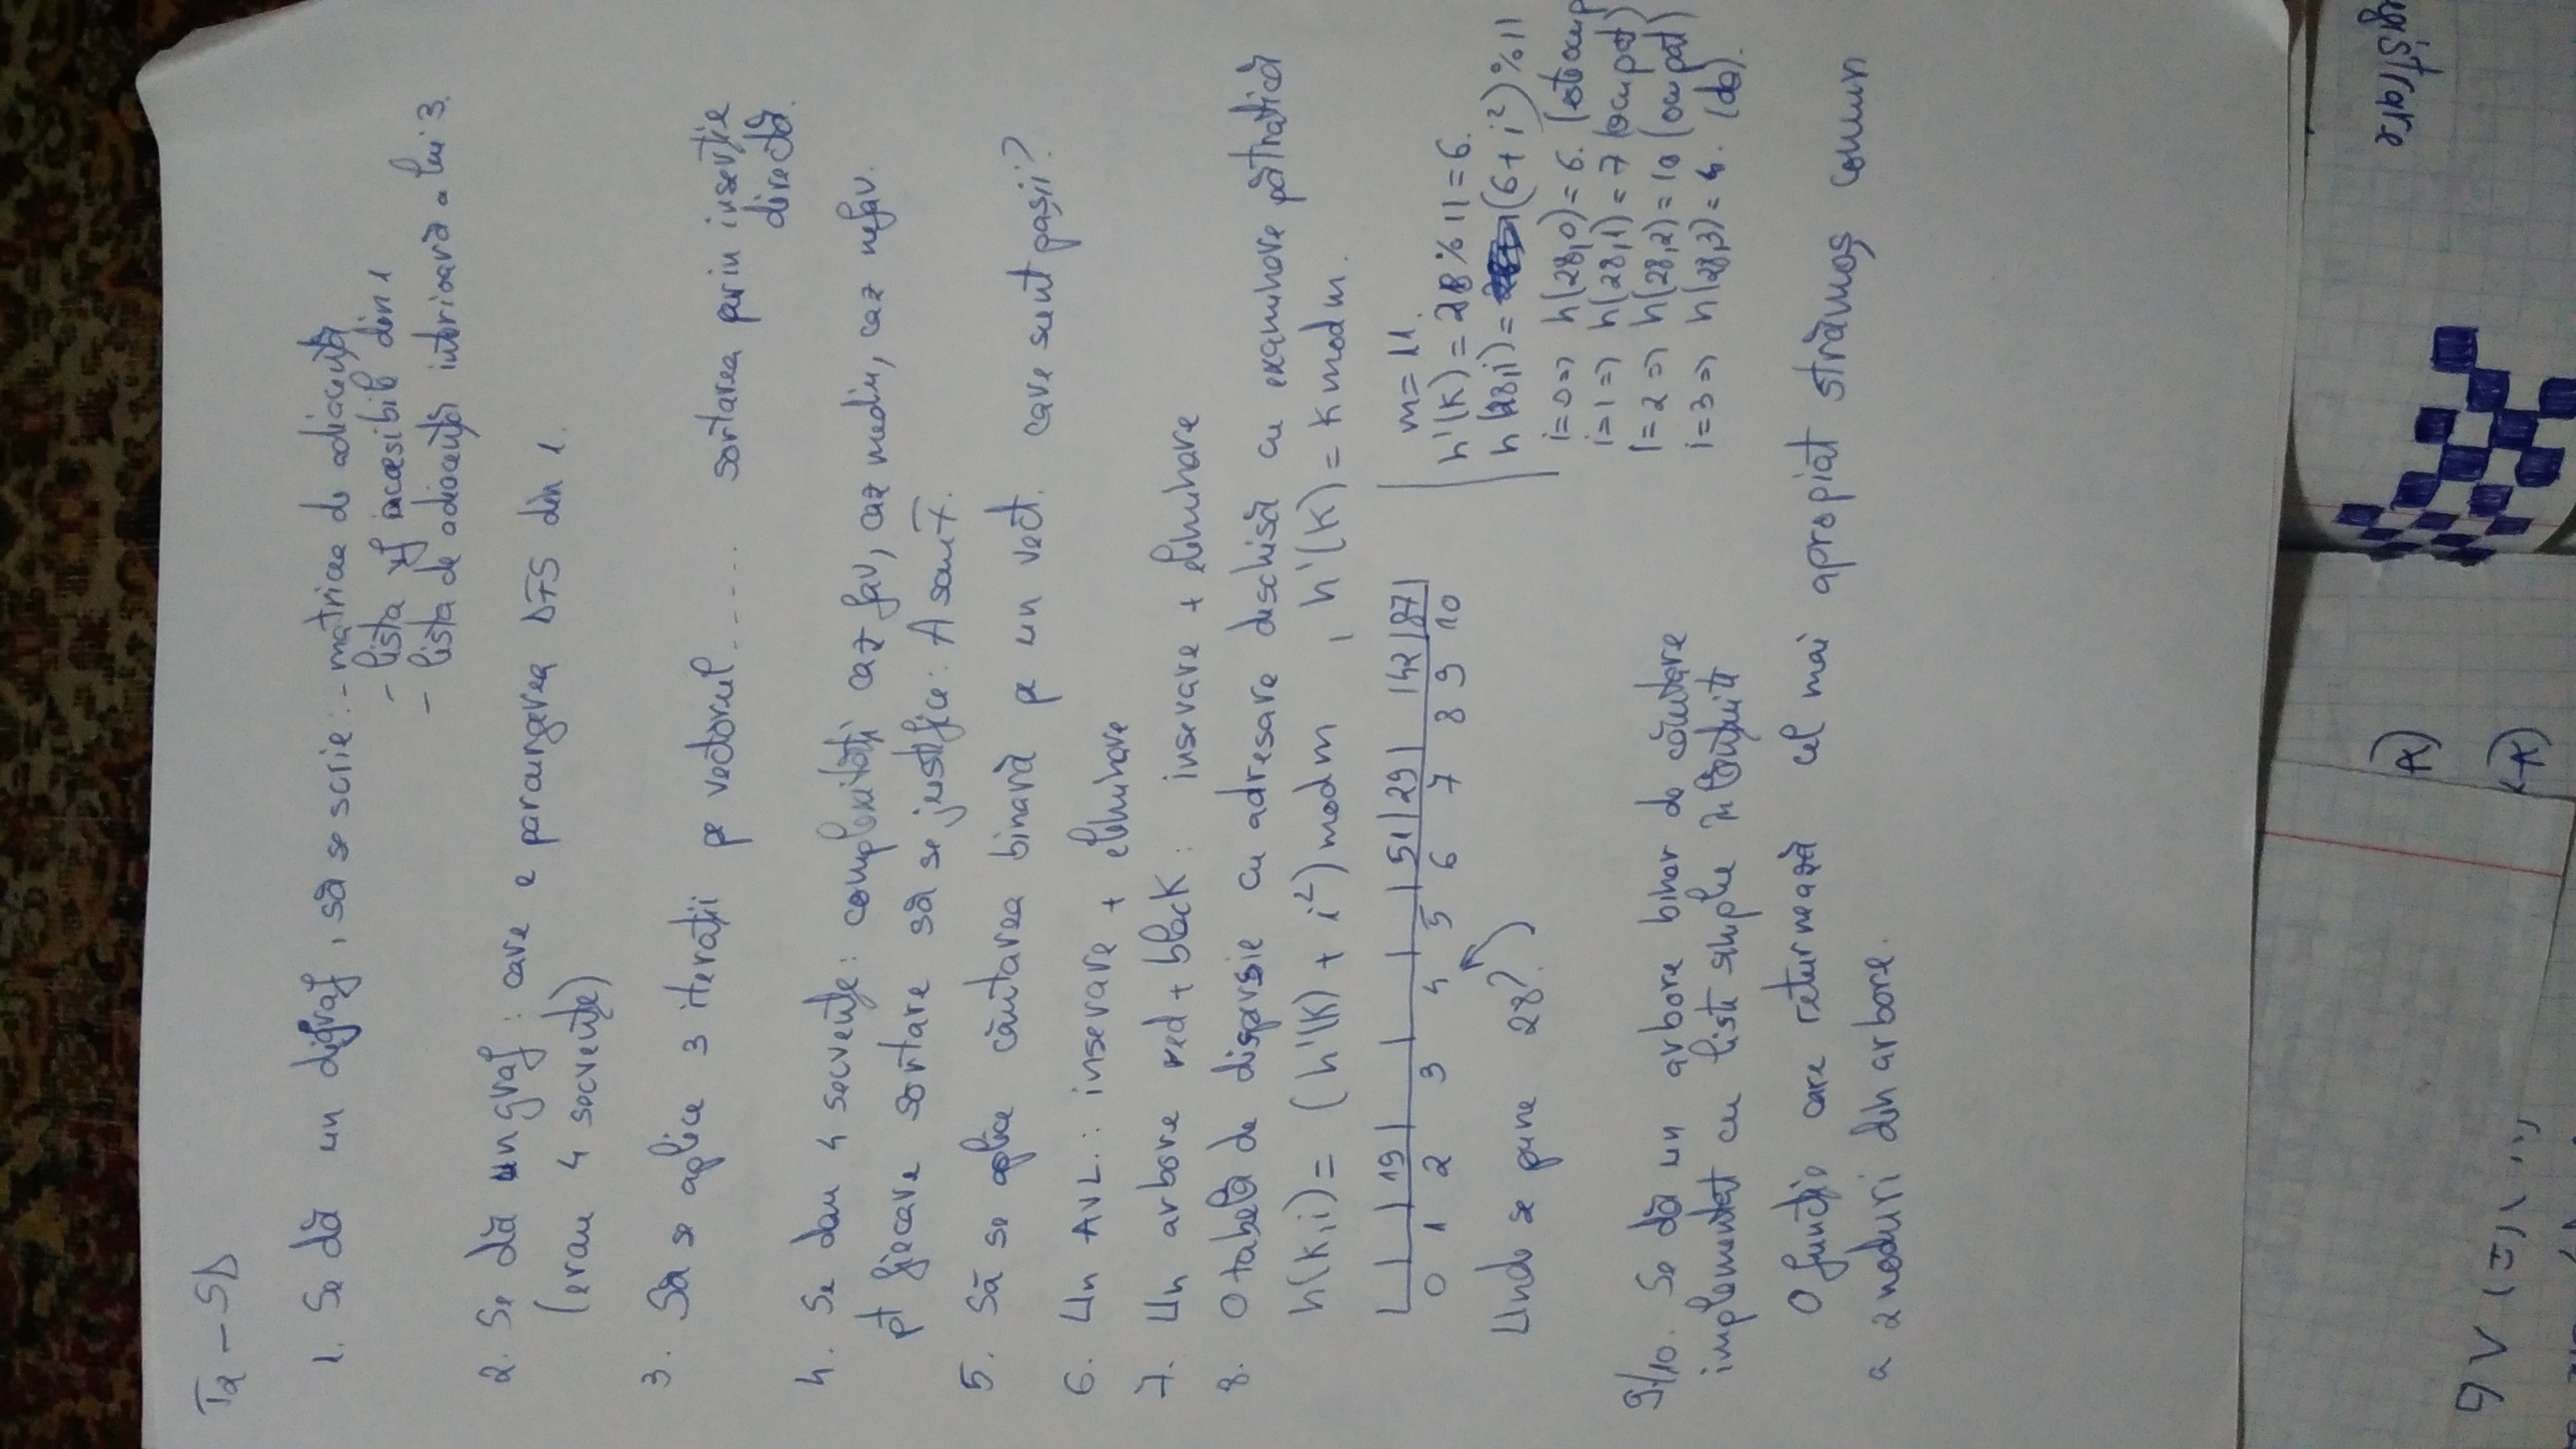 T2 - SD
1. Se dă un digraf, să se scrie: - matricea de adiacență
- lista vf inaccesibile din 1
- lista de adiacență interioară a lui 3.
2. Se dă un graf: care e parcurgerea DFS din 1.
(erau 4 secvențe)
3. Să se aplice 3 iterații pe vectorul ..... sortarea prin inserție
directă.
4. Se dau 4 secvențe: complexități caz fav, caz mediu, caz nefav.
pt fiecare sortare să se justifice: A sau F.
5. Să se aplice căutarea binară pe un vect. care sunt pașii?
6. Un AVL.: inserare + eliminare
7. Un arbore red + black: inserare + eliminare
8. O tabelă de dispersie cu adresare deschisă cu examinare pătratică
h(k,i) = (h'(k) + i²) mod m , h'(k) = k mod m.
19 51 29 42 87
0 1 2 3 4 5 6 7 8 9 10
Unde se pune 28?
m = 11.
h'(k) = 28 % 11 = 6.
h(28,i) = (6 + i²) % 11
i=0 => h(28,0) = 6. (este ocup
i=1 => h(28,1) = 7 (ocupat)
i=2 => h(28,2) = 10 (ocupat)
i=3 => h(28,3) = 4. (da).
9/10. Se dă un arbore binar de căutare
implementat cu liste simple înlănțuite
O funcție care returnează cel mai apropiat strămoș comun
a 2 noduri din arbore.
A)
A)
egistrare